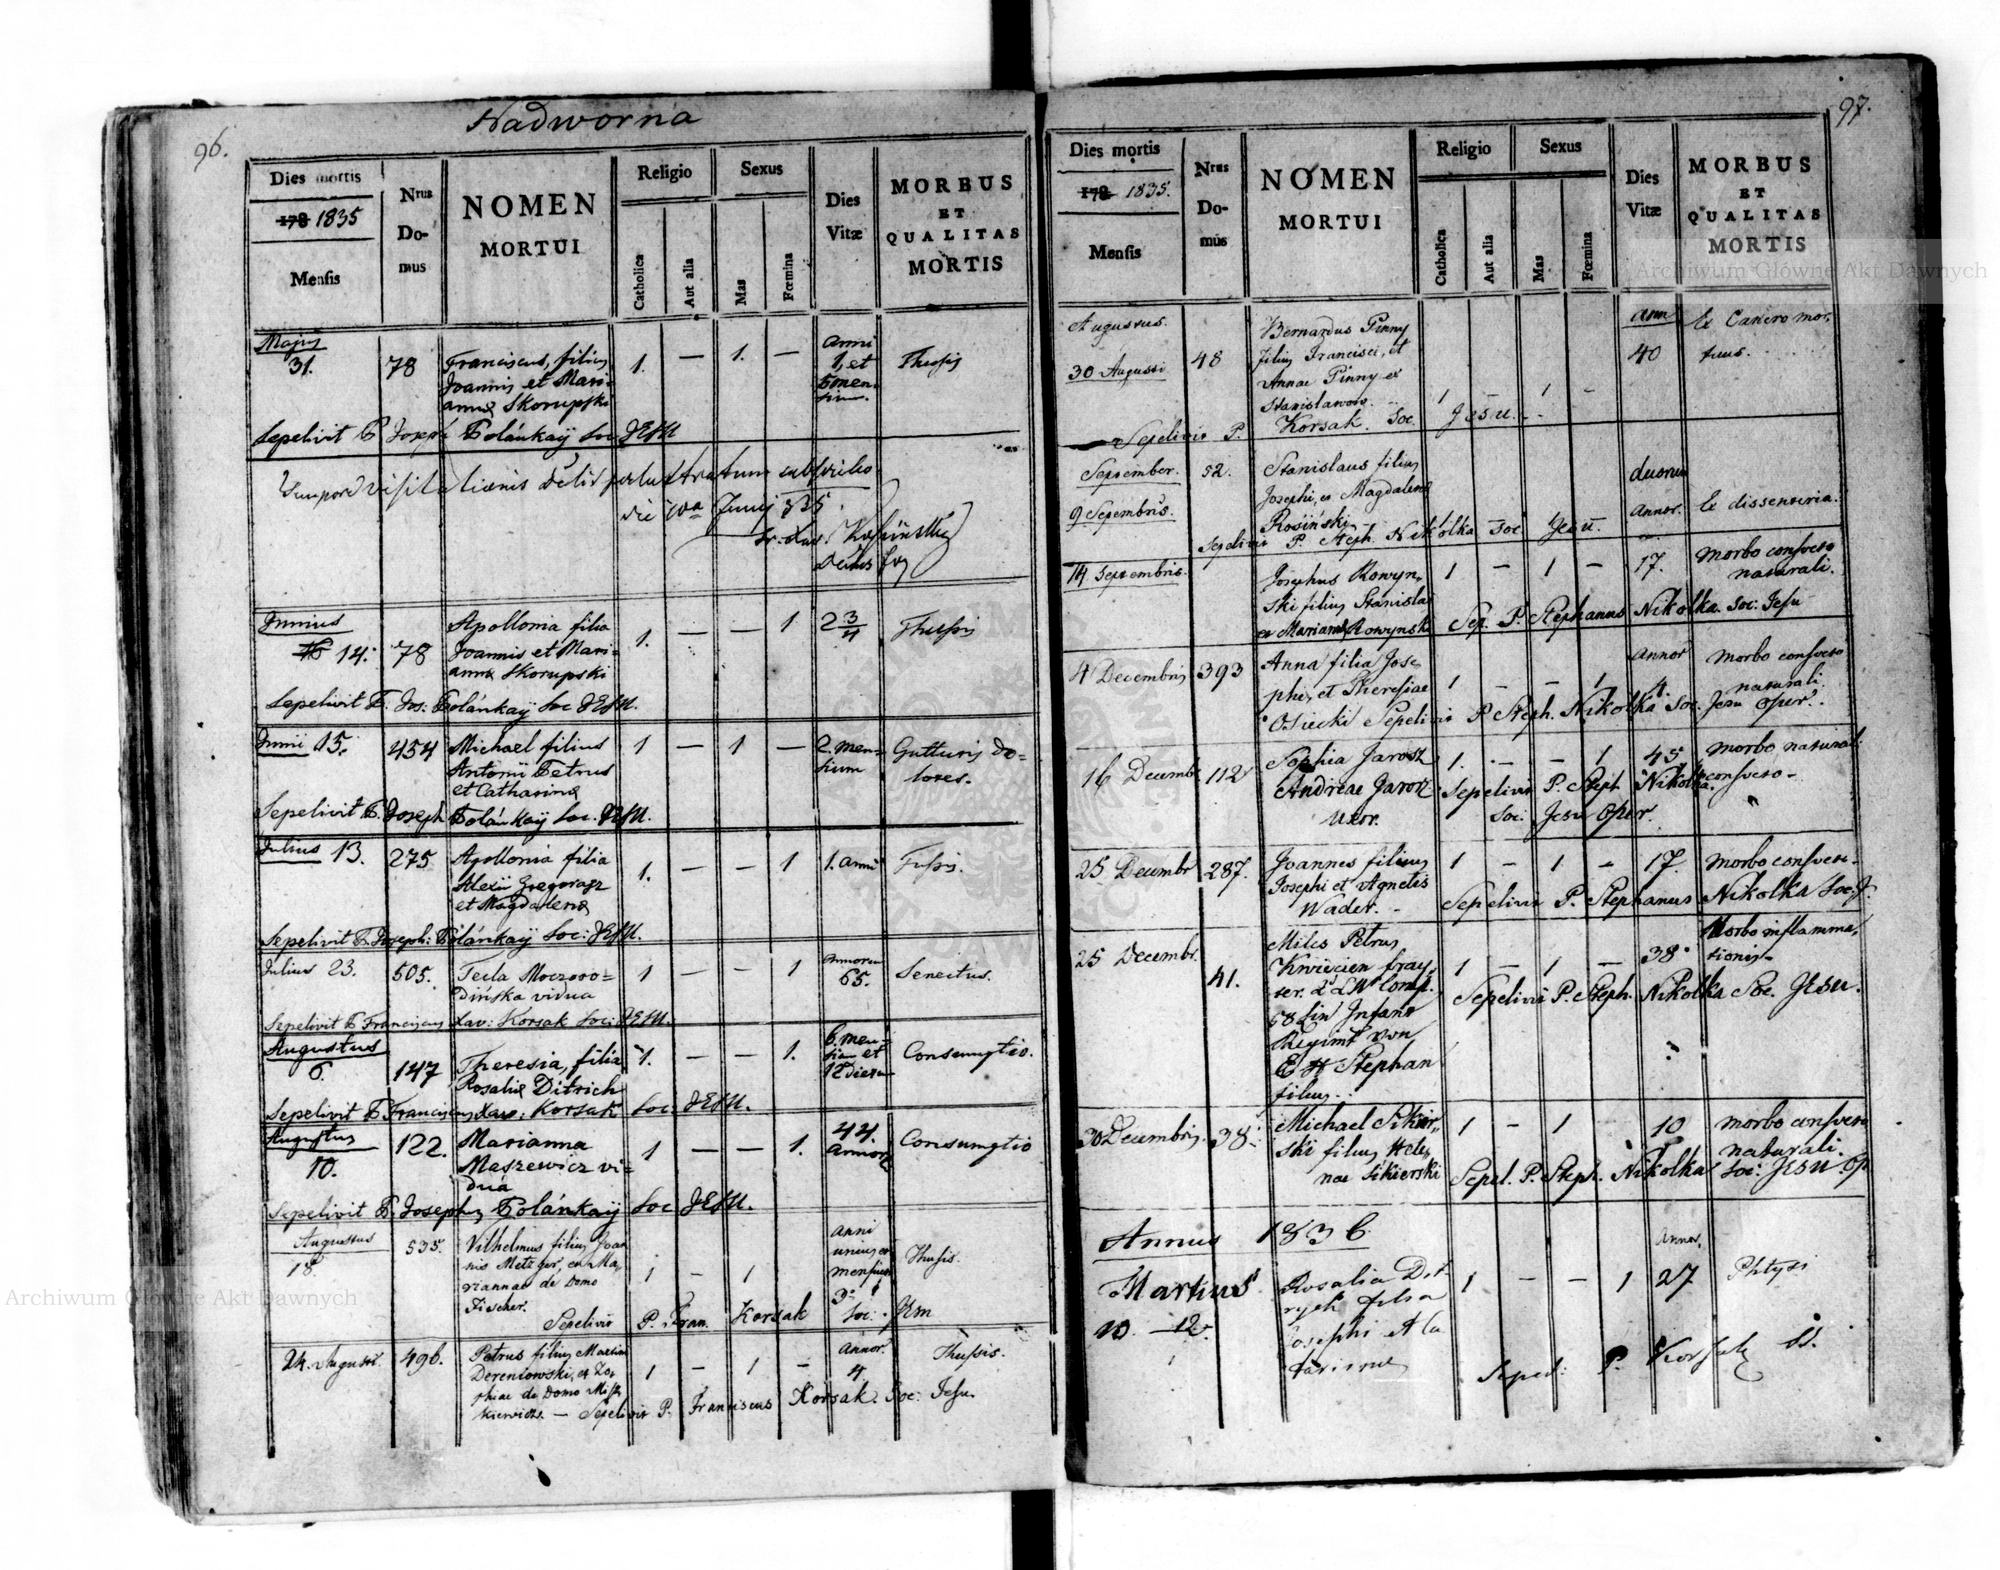 96.
Nadworna
Dies mortis
178 1835
Mensis
Nrus
Do-
mus
NOMEN
MORTUI
Religio
Catholica
Aut alia
Sexus
Mas
Fœmina
Dies
Vitæ
MORBUS
ET
QUALITAS
MORTIS
Majus
31.
78
Franciscus, filius
Joannis et Mari-
annæ Skorupski
1. — 1. —
anni
1, et
5 men-
sium.
Thussis
Sepelivit P. Joseph Polánkaÿ Soc JESU
Tempore visitationis
Junij 835.
Junius
14.
78
Apollonia filia
Joannis et Mari-
annæ Skorupski
1. — — 1
2 3/4
Thussis
Sepelivit P. Jos: Polánkaÿ Soc JESU.
Junii 15.
454
Michael filius
Antonii Petrus
et Catharinæ
1 — 1 —
2. men-
sium
Gutturis do-
lores.
Sepelivit P. Joseph Polánkaÿ Soc. JESU.
Julius 13.
275
Apollonia filia
Alexii Gregorasz
et Magdalenæ
1. — — 1
1. anni
Tussis.
Sepelivit P. Joseph: Polánkaÿ Soc: JESU.
Julius 23.
505.
Tecla Moczoro-
dińska vidua
1 — — 1
annorum
65.
Senectus.
Sepelivit P. Franciscus Xav: Korsak Soc: JESU.
Augustus
6.
147
Theresia, filia
Rosaliæ Ditrich
1. — — 1.
6. men-
sium et
12 dierum
Consumptio.
Sepelivit P. Franciscus Xav: Korsak Soc: JESU.
Augustus
10.
122.
Marianna
Maszewicz vi-
dua
1 — — 1.
44.
annorum
Consumptio
Sepelivit P. Josephus Polánkaÿ Soc JESU.
Augustus
18.
535.
Vilhelmus filius Joan
nis Metzger, et Ma,
riannae de Domo
Fischer.
1 — 1
anni
unius et
mensium
3.
Thussis.
Sepelivit P. Fran. Korsak Soc: Jesu
24. Augusti.
496.
Petrus filius Martini
Dereniowski, et Zo,
phiae de Domo Misz
kiewicz. —
1 — 1 —
Annor.
4
Thussis.
Sepelivit P. Franciscus Korsak. Soc: Jesu.
97.
Dies mortis
178 1835.
Mensis
Nrus
Do-
mus
NOMEN
MORTUI
Religio
Catholica
Aut alia
Sexus
Mas
Fœmina
Dies
Vitæ
MORBUS
ET
QUALITAS
MORTIS
Augustus.
30 Augusti
48
Bernardus Pinny
filius Francisci, et
Annae Pinny ex
Stanislawow.
1 — 1 —
ann
40
Ex Cancro mor,
tuus.
Sepelivit P. Korsak. Soc. Jesu.
September.
9 Septembris.
52.
Stanislaus filius
Josephi, et Magdalenæ
Rosiński
duorum
Annor.
Ex dissenteria.
Sepelivit P. Steph. Nikolka Soc Jesu.
14 Septembris.
Josephus Rowyn,,
ski filius Stanislai
et Mariannæ Rowynski
1 — 1 —
17.
Morbo consveto
naturali.
Sep. P. Stephanus Nikolka. Soc: Jesu
4 Decembris
393
Anna filia Jose,
phi, et Theresiae
Osiecki
1 — — 1
Annor
4.
Morbo consveto
naturali.
Sepelivit P Steph. Nikolka Soc. Jesu Oper.
16 Decemb.
112
Sophia Jarosz
Andreae Jarosz
Uxor.
1. — — 1
45
Morbo naturali
consveto -
Sepelivit P. Steph Nikolka.
Soc: Jesu Oper.
25 Decembr
287.
Joannes filius
Josephi et Agnetis
Wader. -
1 — 1 —
17.
Morbo consvet-
Sepelivit P. Stephanus Nikolka Soc. J.
25 Decembr.
41.
Miles Petrus
Kwiecien
58 Lin Infant
Regimt von
E H Stephan
filius.
1 — 1 —
38
Morbo inflamma,
tionis-
Sepelivit P. Steph. Nikolka Soc. JESU.
30 Decembris.
38.
Michael Sikier,,
ski filius Hele,
nae Sikierski
1 — 1
10
morbo consveto
naturali.
Sepel. P. Steph. Nikolka Soc: JESU Op
Annus 1836
Martius
10. — 12.
Rosalia Dit-
rych filia
Josephi et Ca
tarinae
1 — — 1
Annor.
27
Phtysi
Sepel: P. Korsak SJ.
Archiwum Główne Akt Dawnych
Archiwum Główne Akt Dawnych